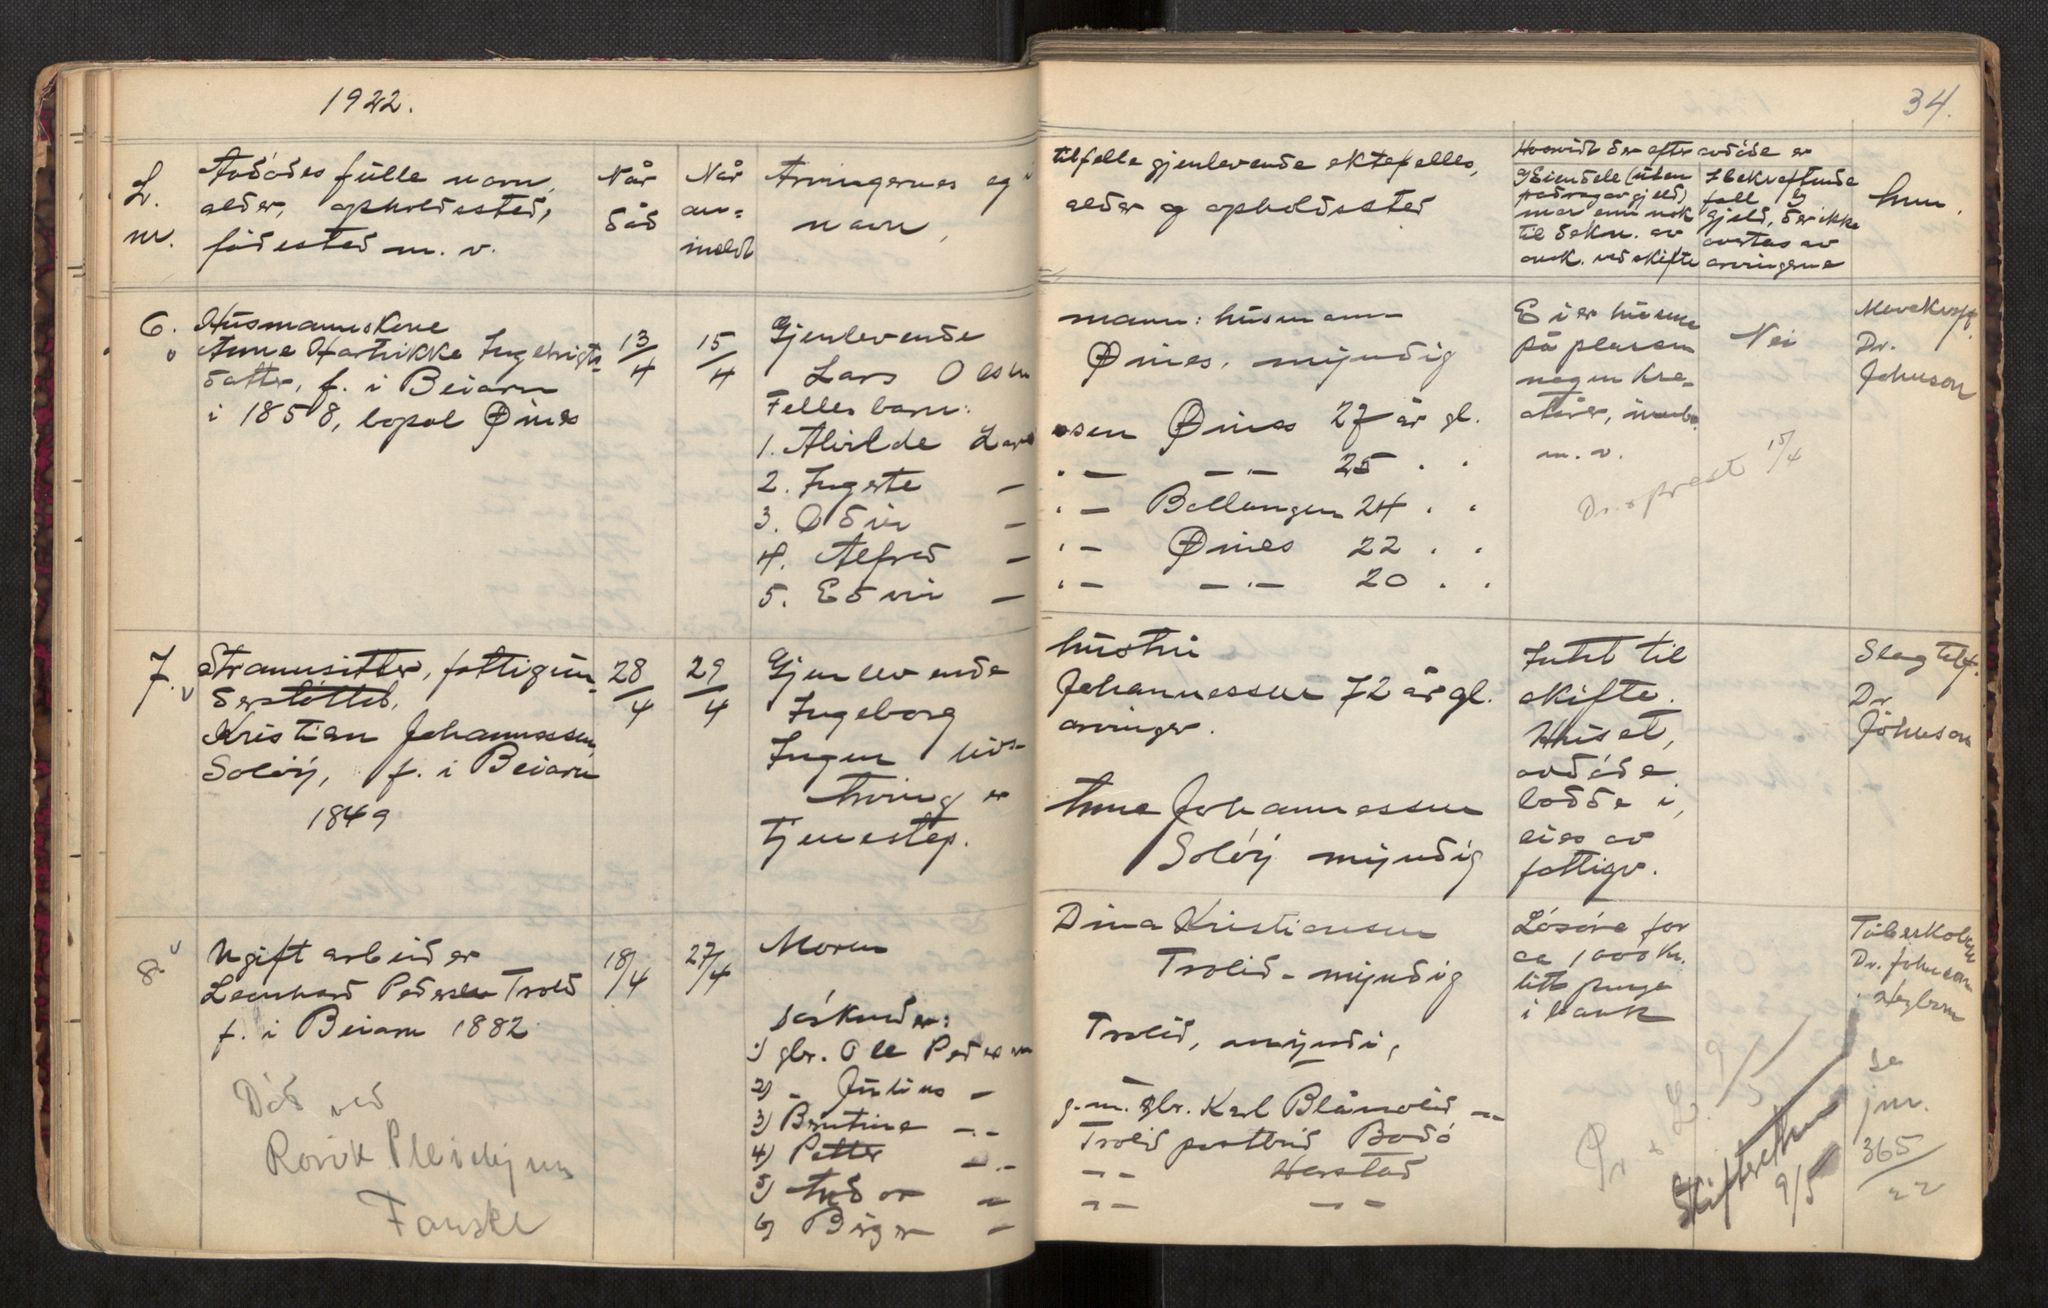 1922.
34.
L.
nr.
Avdødes fulle navn,
alder, opholdssted,
fødested m. v.
Når
død
Når
an=
meldt
Arvingernes og i
navn,
tilfelle gjenlevende ektefelles,
alder og opholdssted
Hvorvidt der efter avdøde er
g) Eiendele (uten
fradrag av gjeld)
mer enn nok
til dekn. av
omk. ved skifte
gjeld, der ikke
overtas av
arvingerne
6.
Husmannskone
Anne Hartvikke Ingebrigts-
datter, f. i Beiarn
i 1858, bopæl Øines
13/4
15/4
Gjenlevende
Lars Olsen
Felles barn:
1. Alvilde Lar
2. Ingerte —
3. Odin —
4. Alfred —
5. Edvin —
mann: husmann
Øines, myndig
sen Øines 27 år gl.
— — 25 . .
— Bollangen 24 . .
— Øines 22 . .
— — 20 . .
Eier husene
på plassen
nogen kre-
aturer, innbo
m. v.
Nei
15/4
Dr.
Johnson
7.
Strannsitter, fattigun-
derstøttet,
Kristian Johannessen,
Soløy, f. i Beiarn
1849
28/4
29/4
Gjenlevende
Ingeborg
Ingen livs-
arving er
tjenestep.
hustru
Johannessen 72 år gl.
arvinger.
Anne Johannessen
Soløy myndig
Intet til
skifte.
Huset,
avdøde
bodde i,
eies av
fattigv.
Slagtilf.
Dr
Johnson
8.
Ugift arbeider
Leonhard Pedersen Trolid
f. i Beiarn 1882
Død ved
Røvik Pleiehjem
Fauske
18/4
27/4
Moren
søskender:
1) gbr. Ole Pedersen
2) " Julius —
3) Bentine —
4) Petter —
5) Andor —
6) Birger —
Dina Kristiansen
Trolid - myndig
Trolid, myndig
g. m. gbr. Karl Blåmolid —
Trolid postbud Bodø
— Harstad
— —
Løsøre for
ca 1000 kr.
litt penge
i bank
9/5
Skifteretten
9/5
Tuberkolose
Dr. Johnson
se
jnr.
365/22